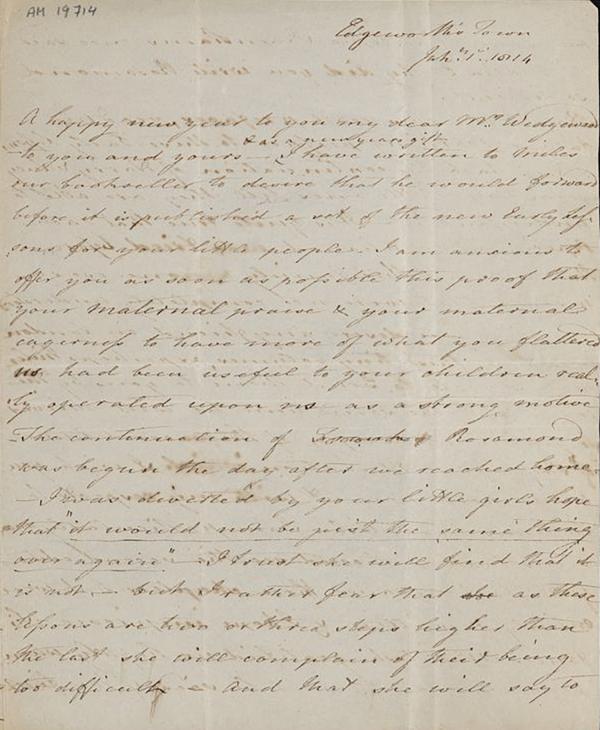 AM 19714
Edgeworth's Town
Jany 1st 1814
A happy new year to you my dear Mrs Wedgewood
& as a new years gift
to you and yours — I have written to Miles
our bookseller to desire that he would forward
before it is published a set of the new Early Les-
sons for your little people. I am anxious to
offer you as soon as possible this proof that
your maternal praise & your maternal
eagerness to have more of what you flattered
us had been useful to your children real-
ly operated upon us as a strong motive
The continuation of Rosamond
was begun the day after we reached home.
— I was diverted by your little girls hope
that "it would not be just the same thing
over again" — I trust she will find that it
is not — but I rather fear that she as these
Lessons are two or three steps higher than
the last she will complain of their being
too difficult — And that she will say to